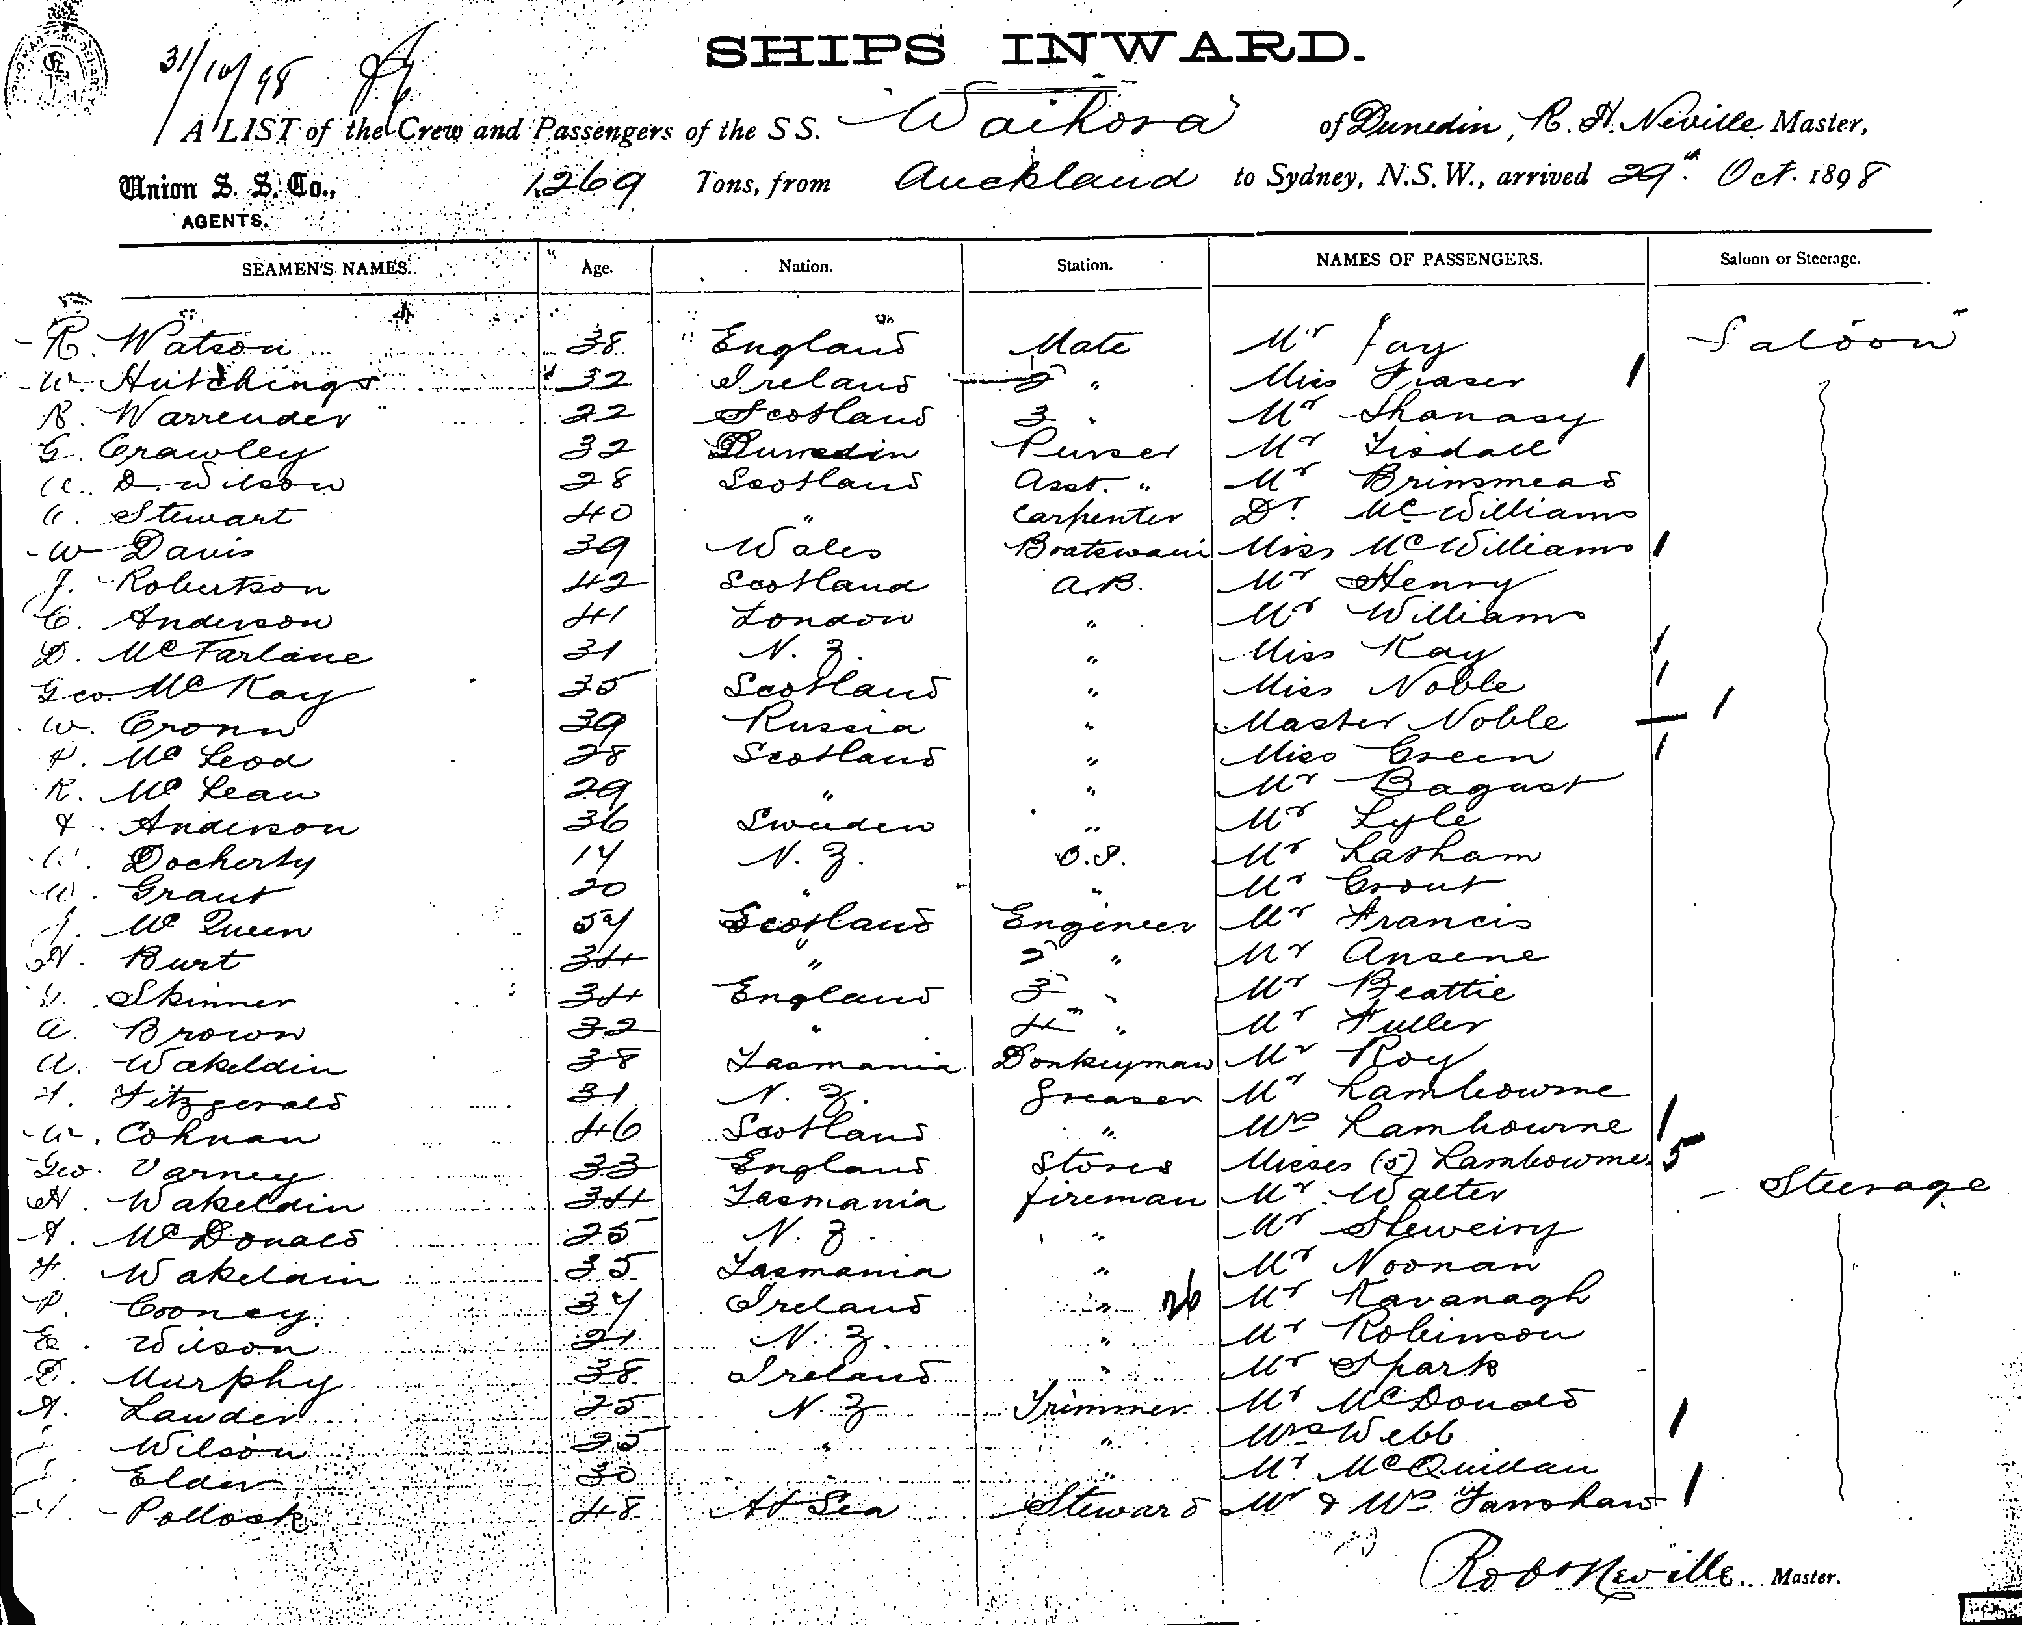 31/10/98
SHIPS INWARD.
A LIST of the Crew and Passengers of the SS. Waihora of Dunedin, R. H. Neville Master,
Union S. S. Co., AGENTS. 1269 Tons, from Auckland to Sydney, N.S.W., arrived 29th Oct. 1898
SEAMEN'S NAMES. Age. Nation. Station. NAMES OF PASSENGERS. Saloon or Steerage.
R. Watson 38 England Mate Mr Jay Saloon
W. Hutchings 32 Ireland 2 " Miss Fraser 1
R. Warrender 22 Scotland 3 " Mr Shanasy
G. Crawley 32 Dunedin Purser Mr Tisdall
D. Wilson 28 Scotland Asst. " Mr Brinsmead
Stewart 40 " Carpenter Dr. McWilliams
W Davis 39 Wales Boatswain Miss McWilliams 1
J. Robertson 42 Scotland A.B. Mr Henry
C. Anderson 41 London " Mr Williams
D. McFarlane 31 N. Z. " Miss Kay 1
Geo. McKay 35 Scotland " Miss Noble 1
W. Cronn 39 Russia " Master Noble 1
McLeod 28 Scotland " Miss Green 1
R. McLean 29 " " Mr Bagust
Anderson 36 Sweden " Mr Lyle
Docherty 17 N. Z. O.S. Mr Lasham
W. Grant 20 " " Mr Grout
J. McQueen 57 Scotland Engineer Mr Francis
Burt 34 " 2 " Mr Ansene
Skinner 34 England 3 " Mr Beattie
A. Brown 32 " 4 " Mr Fuller
A. Wakeldin 38 Tasmania Donkeyman Mr Roy
Fitzgerald 31 N. Z. Greaser Mr Lambourne
W. Cohnan 46 Scotland " Mrs Lambourne 1
Geo. Varney 33 England Stores Misses (5) Lambourne 5
H. Wakeldin 34 Tasmania fireman Mr Walter Steerage
A. McDonald 25 N. Z. " Mr Sleweiry
Wakeldin 35 Tasmania " Mr Noonan
P. Cooney. 37 Ireland " 26 Mr Kavanagh
E. Wilson 21 N. Z. " Mr Robinson
D. Murphy 38 Ireland " Mr Spark
A. Lawder 25 N. Z Trimmer Mr McDonald
Wilson 25 " " Mrs Webb 1
Elder 30 " " Mr McQuillan
Pollock 48 At Sea Steward Mr & Mrs Fanshaw 1
Robt Neville Master.